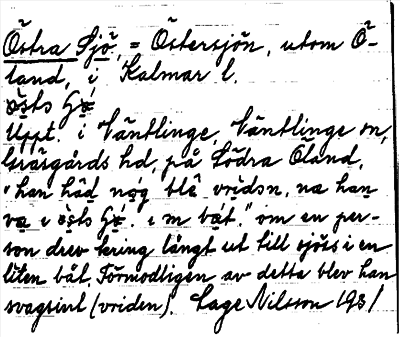 Östra Sjö, = Östersjön, utom Ö-
land, i Kalmar l.
östs
Uppt. i Ventlinge, Ventlinge sn,
Gräsgårds hd, på Södra Öland.
"han håd nog blê vridsn, na han
va i östs i m båt." om en per-
son drev kring långt ut till sjöss i en
liten båt. Förmodligen av detta blev han
svagsint (vriden). Lage Nilsson 1931